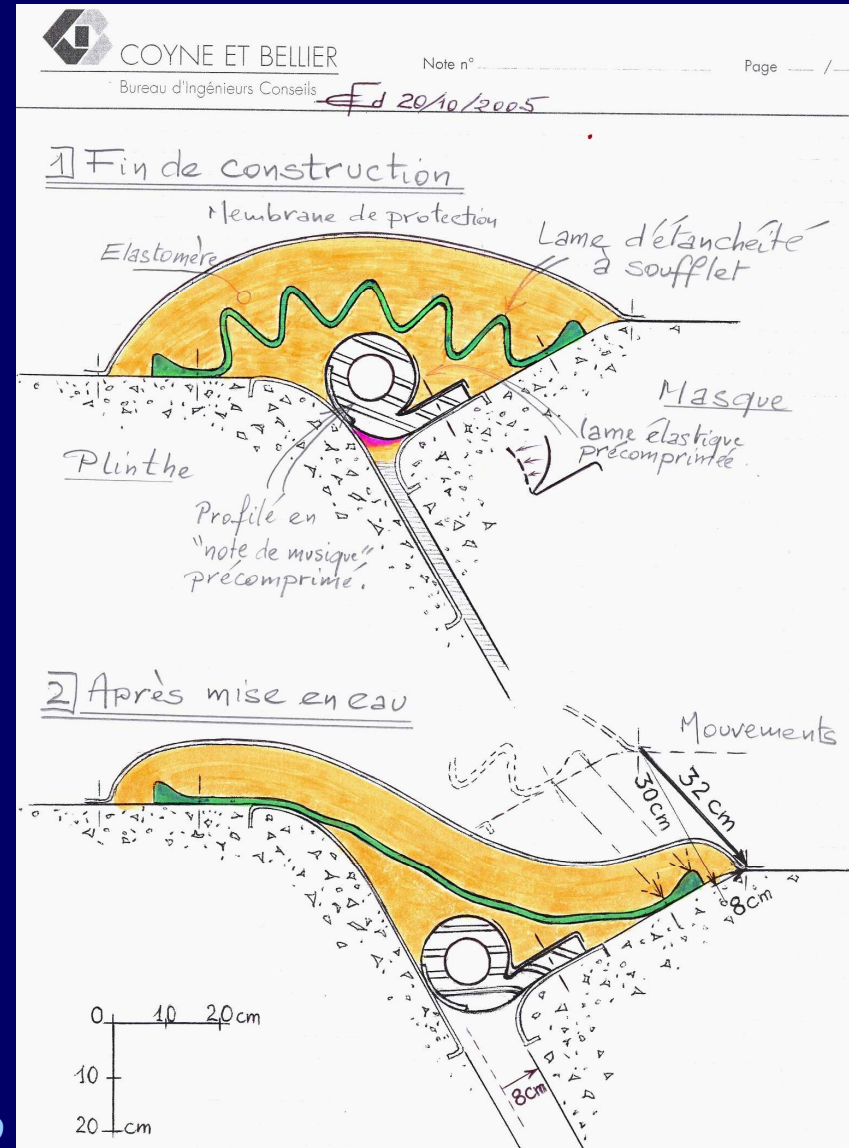 COYNE ET BELLIER
Bureau d'Ingénieurs Conseils
Note n°
Page /
20/10/2005
1 Fin de construction
Membrane de protection
Elastomère
Lame d'étanchéité
à soufflet
Masque
lame élastique
précomprimée
Plinthe
Profilé en
"note de musique"
précomprimé.
2 Après mise en eau
Mouvements
30cm
32cm
8cm
0 10 20cm
10
20 cm
8cm